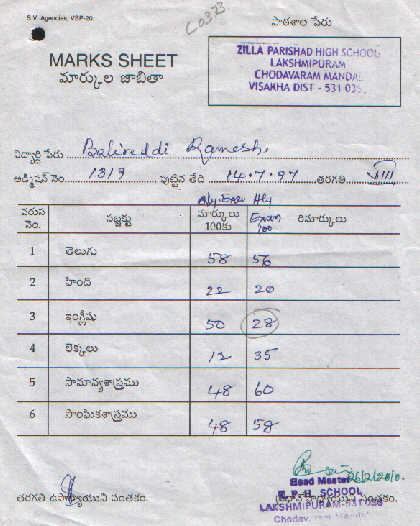 S.V. Agencies, VSP-20.
C0323
పాఠశాల పేరు
MARKS SHEET
మార్కుల జాబితా
ZILLA PARISHAD HIGH SCHOOL
LAKSHMIPURAM
CHODAVARAM MANDAL
VISAKHA DIST - 531 036
విద్యార్థి పేరు Balireddi Ramesh.
అడ్మిషన్ నెం. 1313 పుట్టిన తేది 14.7.97 తరగతి VIII
Hly
వరుస నెం. సబ్జక్టు మార్కులు 100కు Exam 100 రిమార్కులు
1 తెలుగు 58 56
2 హింది 22 20
3 ఇంగ్లీషు 50 28
4 లెక్కలు 12 35
5 సామాన్యశాస్త్రము 48 60
6 సాంఘికశాస్త్రము 48 58
26/2/2010.
తరగతి ఉపాధ్యాయుని సంతకం. ప్రధాన సంతకం.
Head Master
Z. P. H. SCHOOL
LAKSHMIPURAM-531036
Chodavaram Mandal